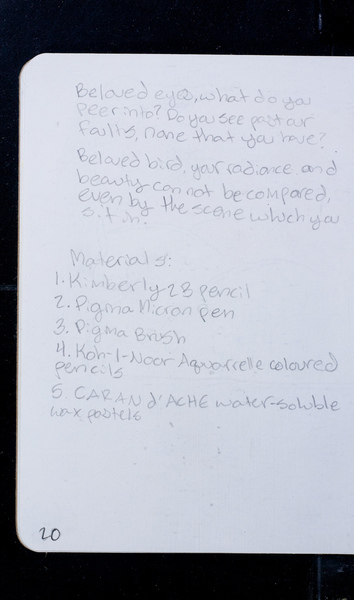 Beloved eyes, what do you
peer into? Do you see past our
faults, none that you have?
Beloved bird, your radiance and
beauty can not be compared,
even by the scene which you
sit in.
Materials:
1. Kimberly 2B pencil
2. Pigma Micron pen
3. Pigma Brush
4. Koh-I-Noor Aquarelle coloured
pencils
5. CARAN d'ACHE water-soluble
wax pastels
20